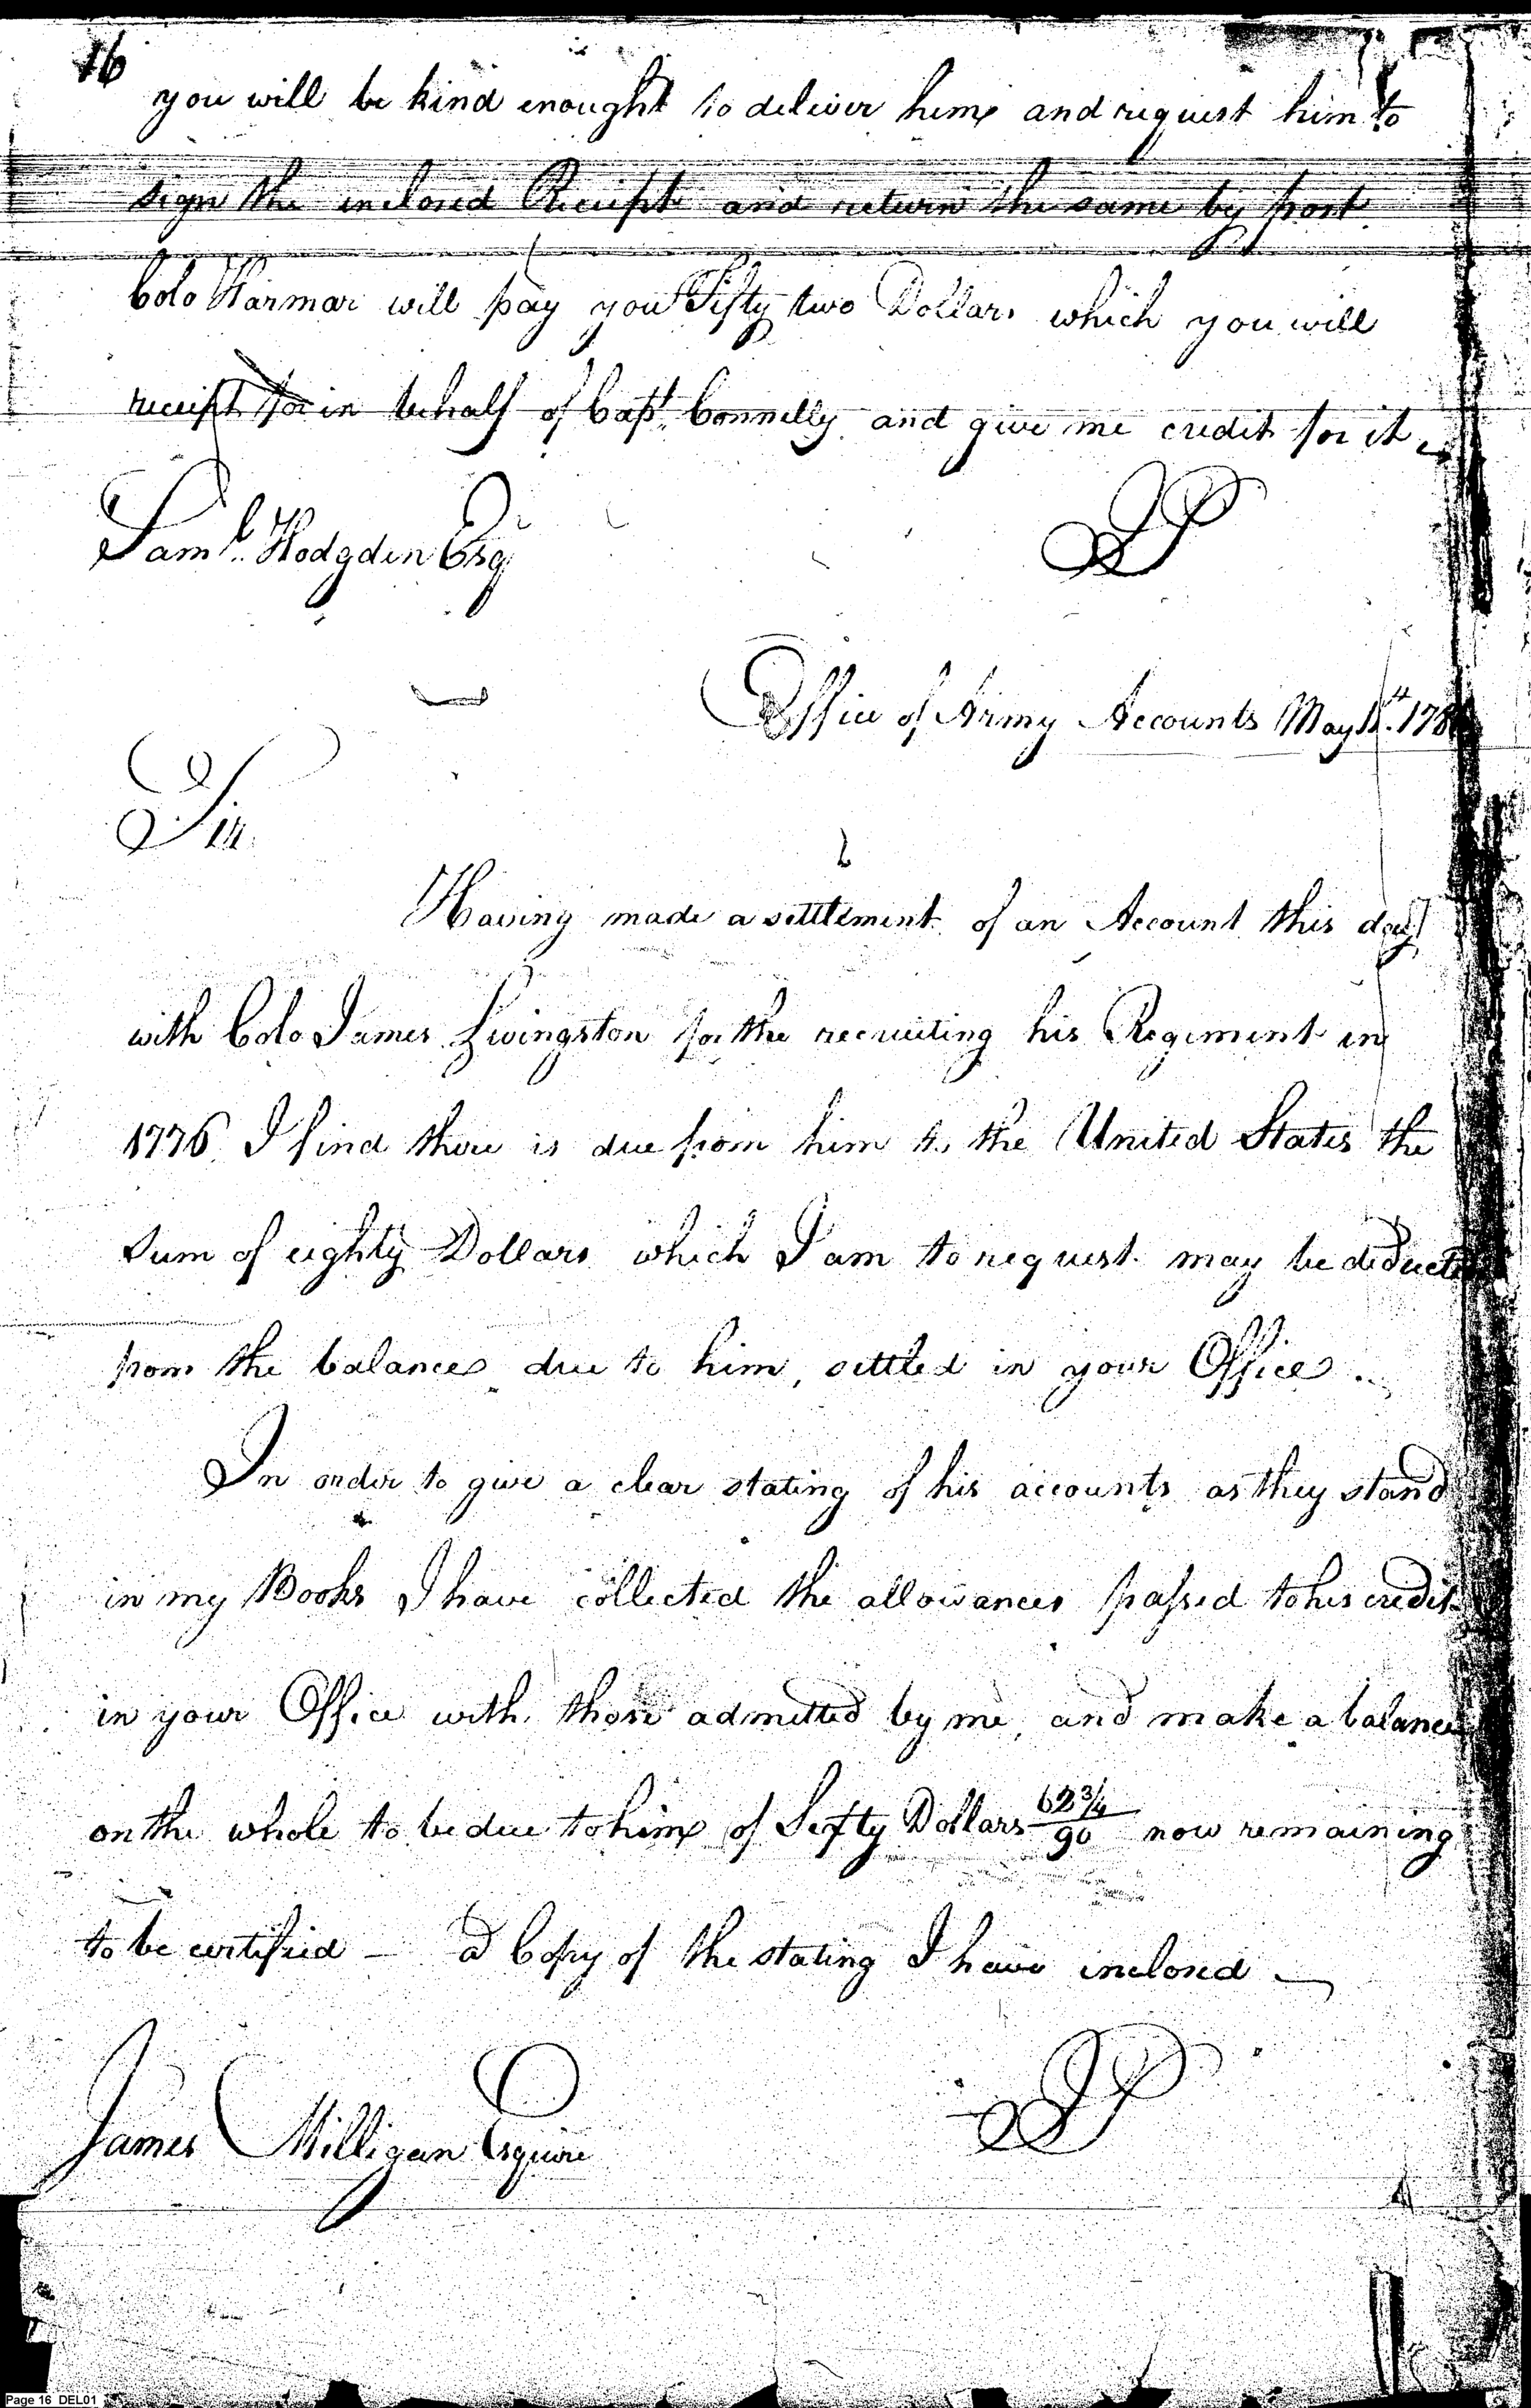 16
you will be kind enought to deliver him and request him to
sign the inclosed Receipt and return the same by post
Colo Harmar will pay you Fifty two Dollars which you will
receipt for in behalf of Capt. Connelly and give me credit for it
Saml. Hodgden Esqr
JP
Office of Army Accounts May 178
Sir
Having made a settlement of an Account this day
with Colo James Livingston for the recruiting his Regiment in
1776 I find there is due from him to the United States the
Sum of eighty Dollars which I am to request may be deducted
from the balance due to him, settled in your Office.
In order to give a clear stating of his accounts as they stand
in my Books I have collected the allowances passed to his credit
in your Office with those admitted by me, and make a balance
on the whole to be due to him of Dollars 62 3/4/90 now remaining
to be certified — a Copy of the stating I have inclosed —
James Milligan Esquire
JP
Page 16 DEL01